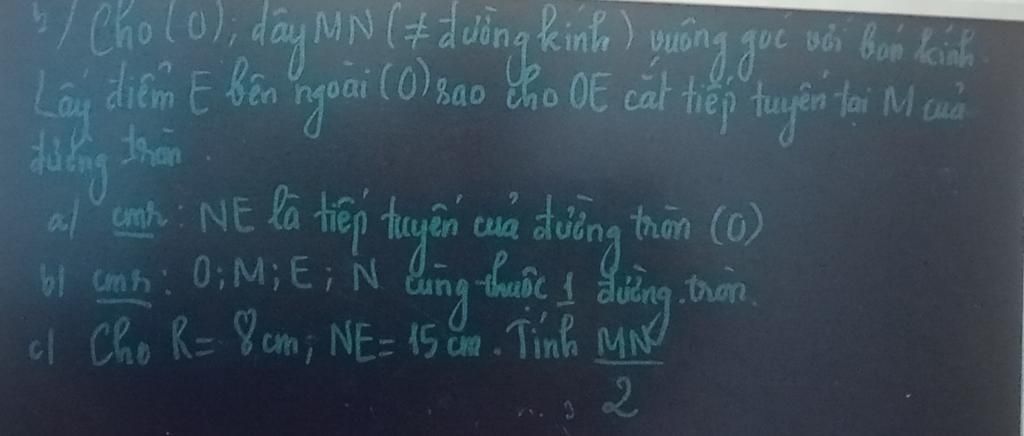 b/ Cho (O); dây MN (≠ đường kính) vuông góc với bán kính.
Lấy điểm E bên ngoài (O) sao cho OE cắt tiếp tuyến tại M của
đường tròn.
a/ cmr: NE là tiếp tuyến của đường tròn (O)
b/ cmr: O; M; E; N cùng thuộc 1 đường tròn.
c/ Cho R = 8cm; NE = 15 cm. Tính MN/2